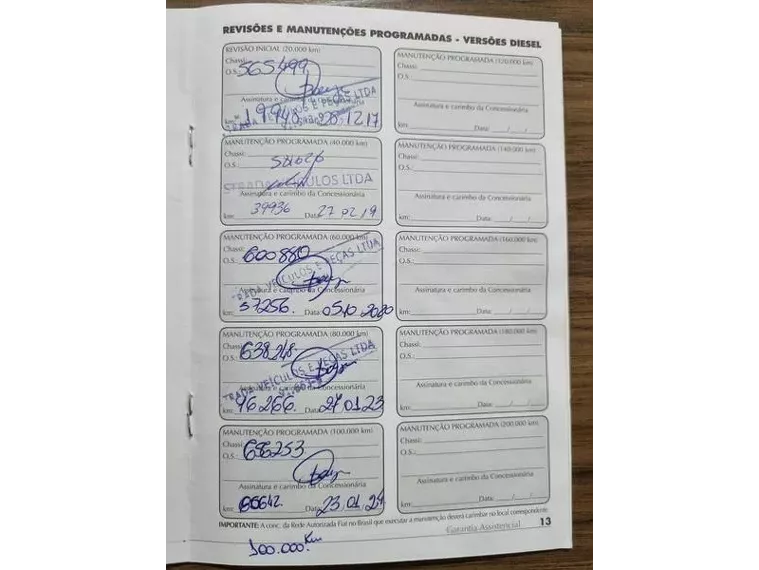 REVISÕES E MANUTENÇÕES PROGRAMADAS - VERSÕES DIESEL
REVISÃO INICIAL (20.000 km)
Chassi:
O.S.: 565499
Assinatura e carimbo da Concessionária
STRADA VEÍCULOS E PEÇAS LTDA
km: 19948 28.12.17
MANUTENÇÃO PROGRAMADA (40.000 km)
Chassi:
O.S.:
STRADA VEÍCULOS LTDA
Assinatura e carimbo da Concessionária
km: 39936 Data: 27 02 19
MANUTENÇÃO PROGRAMADA (60.000 km)
Chassi:
O.S.: 600880
STRADA VEÍCULOS E PEÇAS LTDA
Assinatura e carimbo da Concessionária
km: 57256. Data: 05.10.2020
MANUTENÇÃO PROGRAMADA (80.000 km)
Chassi:
O.S.: 638.248.
STRADA VEÍCULOS E PEÇAS LTDA
Assinatura e carimbo da Concessionária
km: 76266. Data: 27.01.23
MANUTENÇÃO PROGRAMADA (100.000 km)
Chassi:
O.S.: 656253
Assinatura e carimbo da Concessionária
km: Data: 23.01.24
MANUTENÇÃO PROGRAMADA (120.000 km)
Chassi:
O.S.:
Assinatura e carimbo da Concessionária
km: Data: / /
MANUTENÇÃO PROGRAMADA (140.000 km)
Chassi:
O.S.:
Assinatura e carimbo da Concessionária
km: Data: / /
MANUTENÇÃO PROGRAMADA (160.000 km)
Chassi:
O.S.:
Assinatura e carimbo da Concessionária
km: Data: / /
MANUTENÇÃO PROGRAMADA (180.000 km)
Chassi:
O.S.:
Assinatura e carimbo da Concessionária
km: Data: / /
MANUTENÇÃO PROGRAMADA (200.000 km)
Chassi:
O.S.:
Assinatura e carimbo da Concessionária
km: Data: / /
IMPORTANTE: A conc. da Rede Autorizada Fiat no Brasil que executar a manutenção deverá carimbar no local correspondente.
Garantia Assistencial 13
100.000 Km